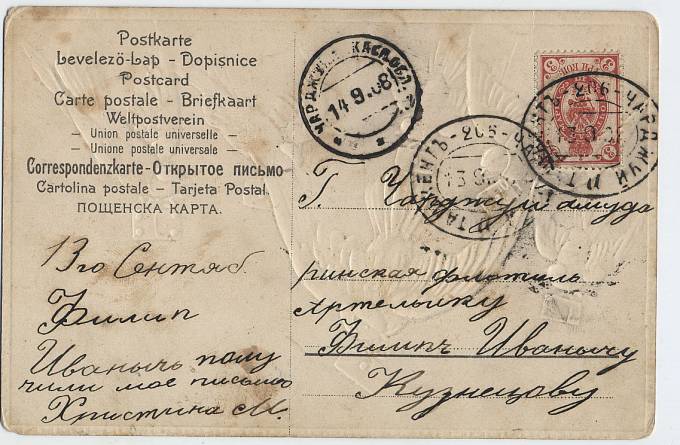 Postkarte
Levelező-Lap - Dopisnice
Postcard
Carte postale - Briefkaart
Weltpostverein
- Union postale universelle -
- Unione postale universale -
Correspondenzkarte - Открытое письмо
Cartolina postale - Tarjeta Postal.
ПОЩЕНСКА КАРТА.
ЧАРДЖУЙ ЗАКАСП. ОБЛ.
14.9.08
ТАШКЕНТЪ - 206 - ЧАРДЖУЙ
13 9 08
3
Г. Чарджуй амуда
ринская флотиль
Артельшику
Филипъ Иванычу
Кузнецову
13го Сентяб.
Филип
Иванычь полу
чили мое письмо
Христина М.